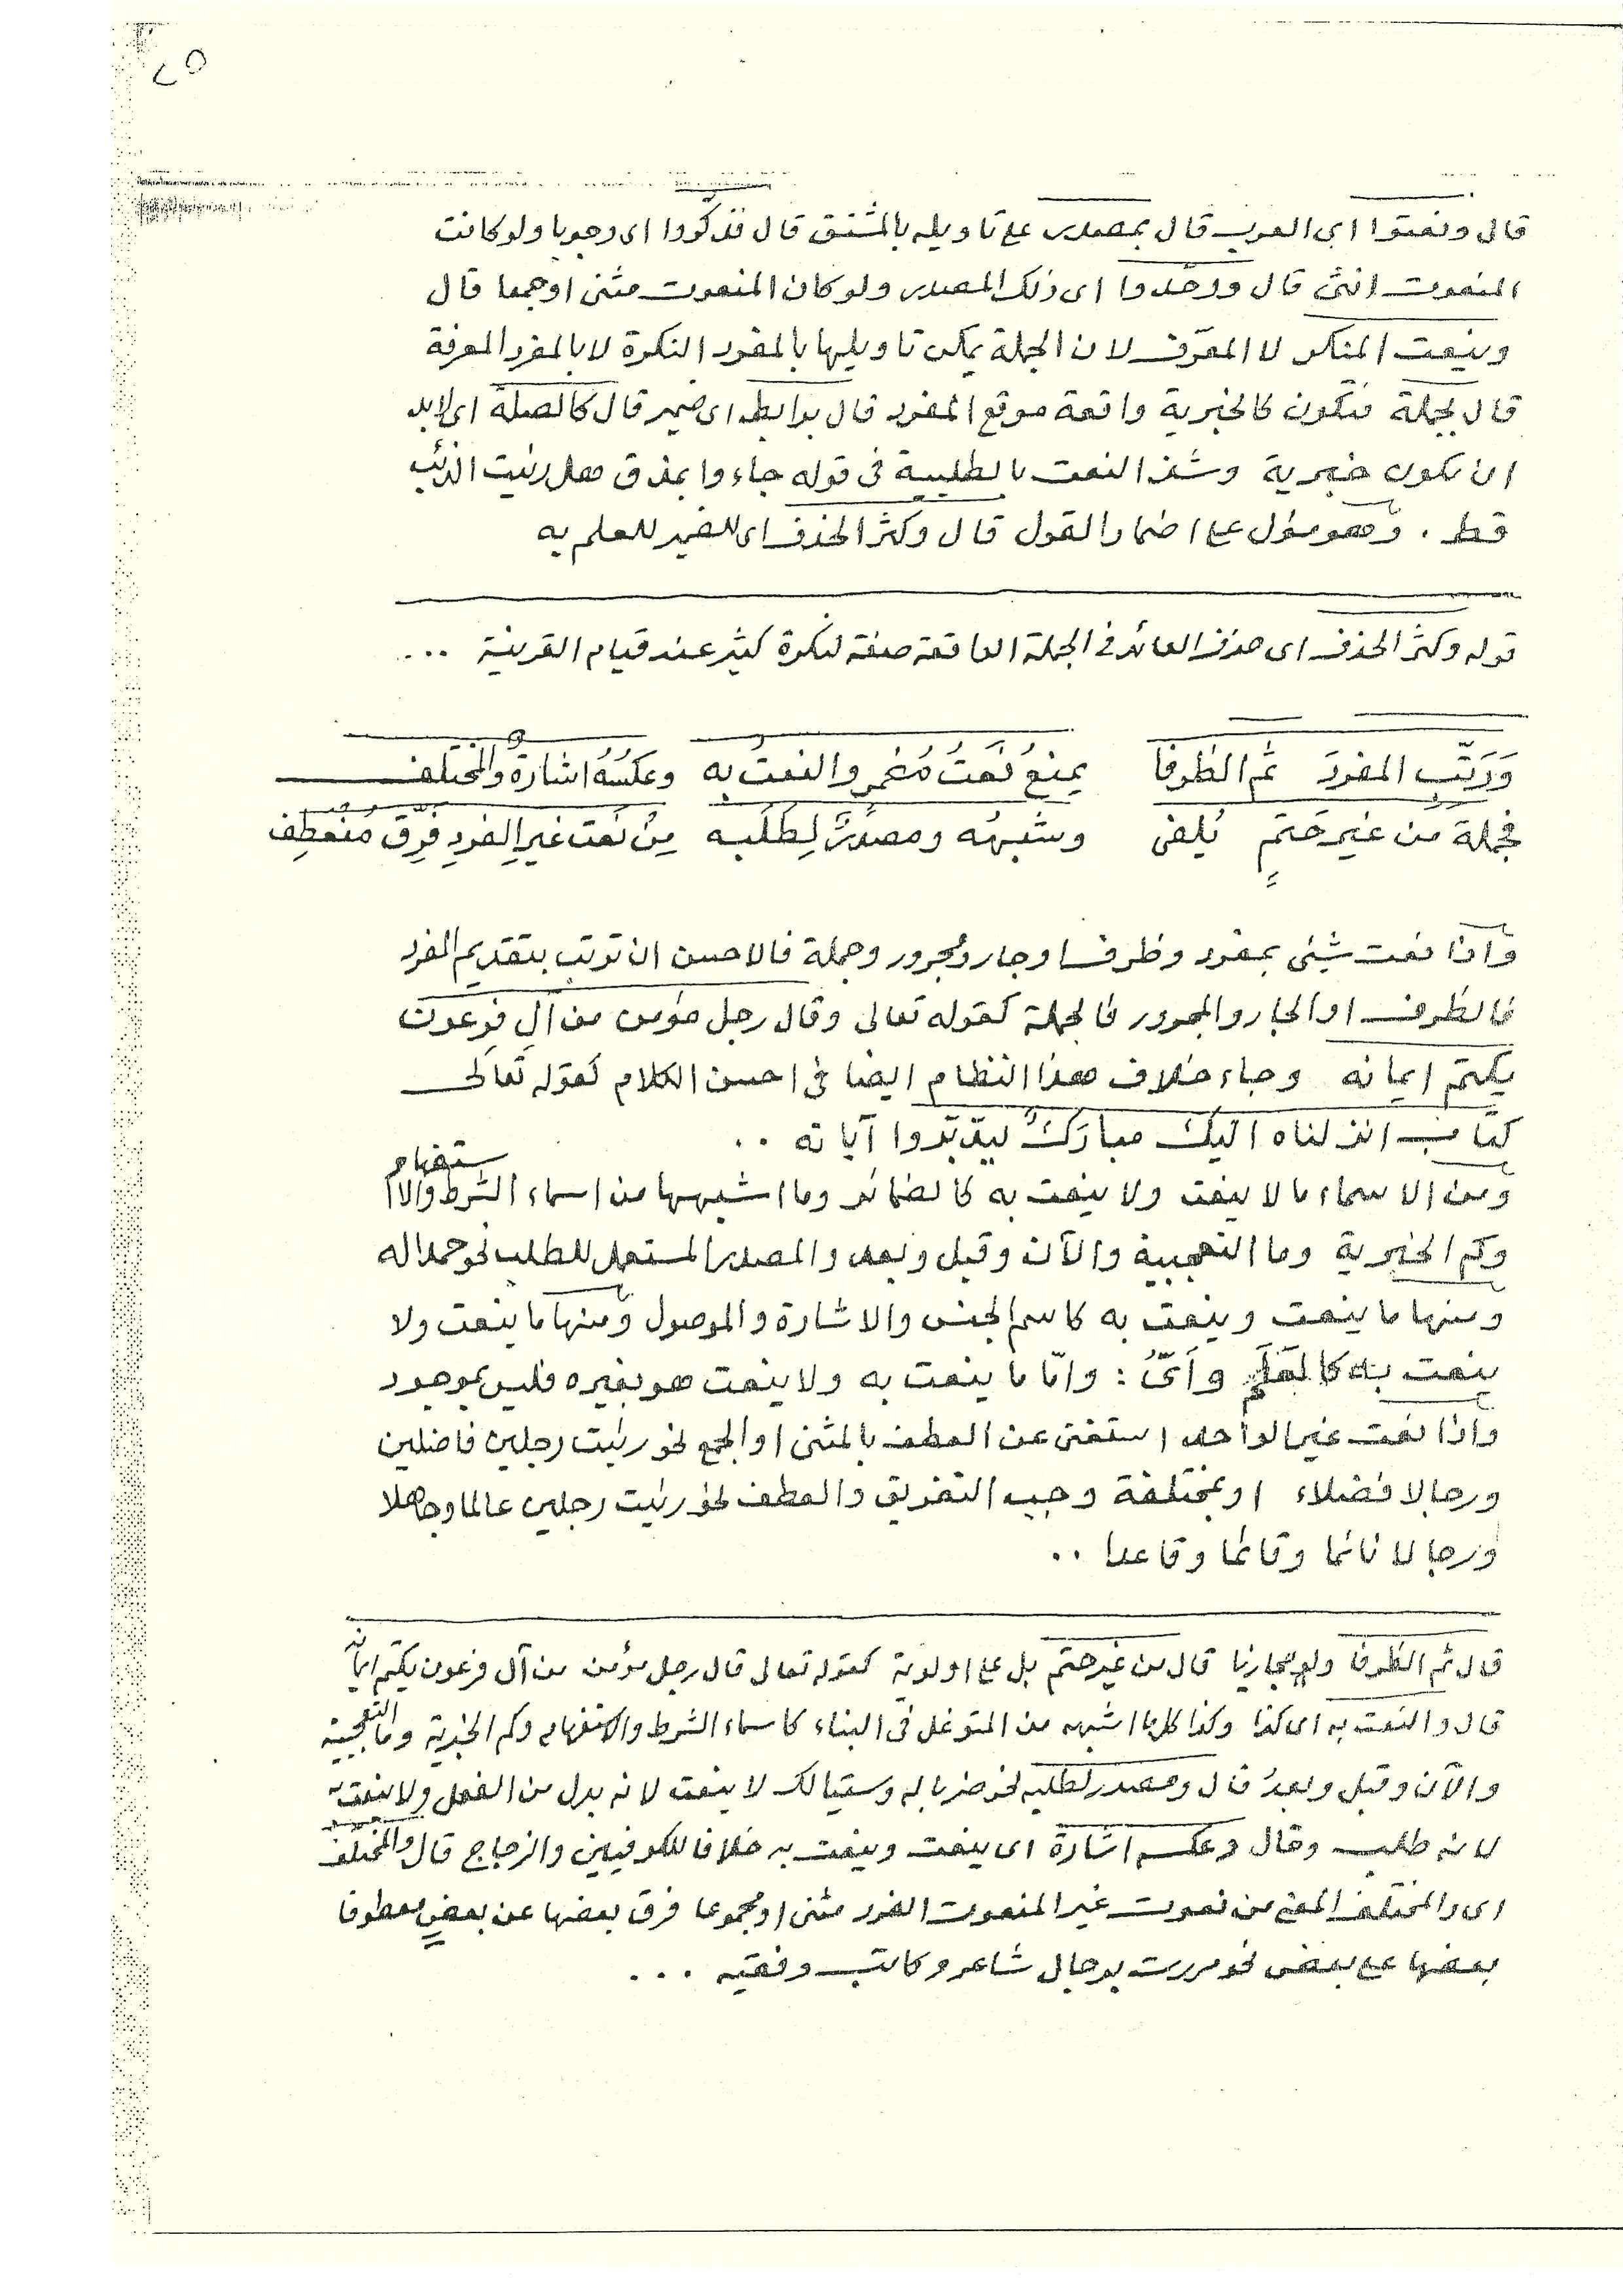 ٢٥
قال ونعتوا اى العرب قال بمصدر على تاويله بالمشتق قال فذكّروا اى وجوبا ولو كانت
المنعوت انثى قال ووحّدوا اى ذلك المصدر ولو كان المنعوت مثنى او جمعا قال
وينعت المنكر لا المعرّف لان الجملة يمكن تاويلها بالمفرد النكرة لا بالمفرد المعرفة
قال بجملة فتكون كالخبرية واقعة موقع المفرد قال برابط اى ضمير قال كالصلة اى لابد
ان تكون خبرية وشذ النعت بالطلبية فى قوله جاءوا بمذق هل رئيت الذئب
قط . وهو مئول على اضمار القول قال وكثر الحذف اى للضمير للعلم به
قوله وكثر الحذف اى حذف العائد فى الجملة الواقعة صفة لنكرة كثير عند قيام القرينة ...
وَرَتّبِ المفردَ ثم الظروفا يمنعُ نَعتُ مُضمرٍ والنعتُ به وعكسُهُ اشارةٌ والمختلف
فجملةً من غيرِ حَتمٍ تُلفى وشبهُه ومصدرٌ لِطَلَبِه مِنْ نَعت غيرِ الفردِ فرِّق منعطِف
واذا نعت شيئى بمفرد وظرف او جار ومجرور وجملة فالاحسن ان ترتب بتقديم المفرد
فالظرف او الجار والمجرور فالجملة كقوله تعالى وقال رجل مؤمن من آلِ فِرعون
يكتم ايمانه وجاء خلاف هذا النظام ايضا فى احسن الكلام كقوله تعالى
كتاب انزلناه اليك مباركٌ ليدّبّروا آياته ..
ومن الاسماء ما لا ينعت ولا ينعت به كالضمائر وما اشبهها من اسماء الشرط والاستفهام
وكم الخبرية وما التعجبية والآن وقبل وبعد والمصدر المستعمل للطلب نحو حمدا له
ومنها ما ينعت وينعت به كاسم الجنس والاشارة والموصول ومنها ما ينعت ولا
ينعت به كالعَلَمِ وأىُّ : وامّا ما ينعت به ولا ينعت هو بغيره فليس بموجود
واذا نعت غير الواحد استغنى عن العطف بالمثنى او الجمع نحو رئيت رجلين فاضلين
ورجالا فضلاء او بمختلفة وجب التفريق والعطف نحو رئيت رجلين عالما وجاهلا
ورجالا نائما وقائما وقاعدا ..
قال ثم الظروفا ولو مجازيا قال من غير حتم بل على اولوية كقوله تعالى قال رجل مؤمن من آل فرعون يكتم ايمانه
قال والنعت به اى كذا وكذا كل ما اشبهه من المتوغل فى البناء كاسماء الشرط والاستفهام وكم الخبرية وما التعجبية
والآن وقبل وبعدُ قال ومصدر لطلبه نحو ضربا له وسقيا لك لا ينعت لانه بدل من الفعل ولا ينعت به
لانه طلب وقال وعكسه اشارة اى ينعت وينعت به خلافا للكوفيين والزجاج قال والمختلف
اى والمختلف المعنى من نعوت غير المنعوت الفرد مثنى او مجموعا فرق بعضها عن بعضٍ معطوفا
بعضها على بعض نحو مررت برجال شاعر وكاتب وفقيه ...